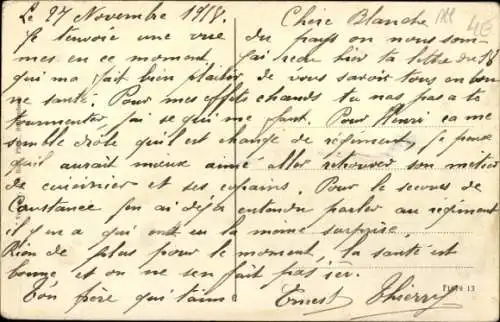 Le 27 Novembre 1918. Chère Blanche
Je t'envoie une vue du pays ou nous som-
mes en ce moment, j'ai reçu hier ta lettre du 18
qui ma fait bien plaisir de vous savoir tous en bon
ne santé. Pour mes effets chauds tu nas pas a te
tourmenter, jai se qui me faut. Pour Henri ça me
semble drôle qu'il est changé de régiment, je pense
quil aurait mieux aimé aller retrouver son métier
de cuisinier et ses copains. Pour le secours de
Constance j'en ai déjà entendu parler au régiment
il y en a qui ont eu la meme surprise.
Rien de plus pour le moment, la santé est
bonne et on ne sen fait pas ici.
Ton frère qui t'aime Ernest Thierry